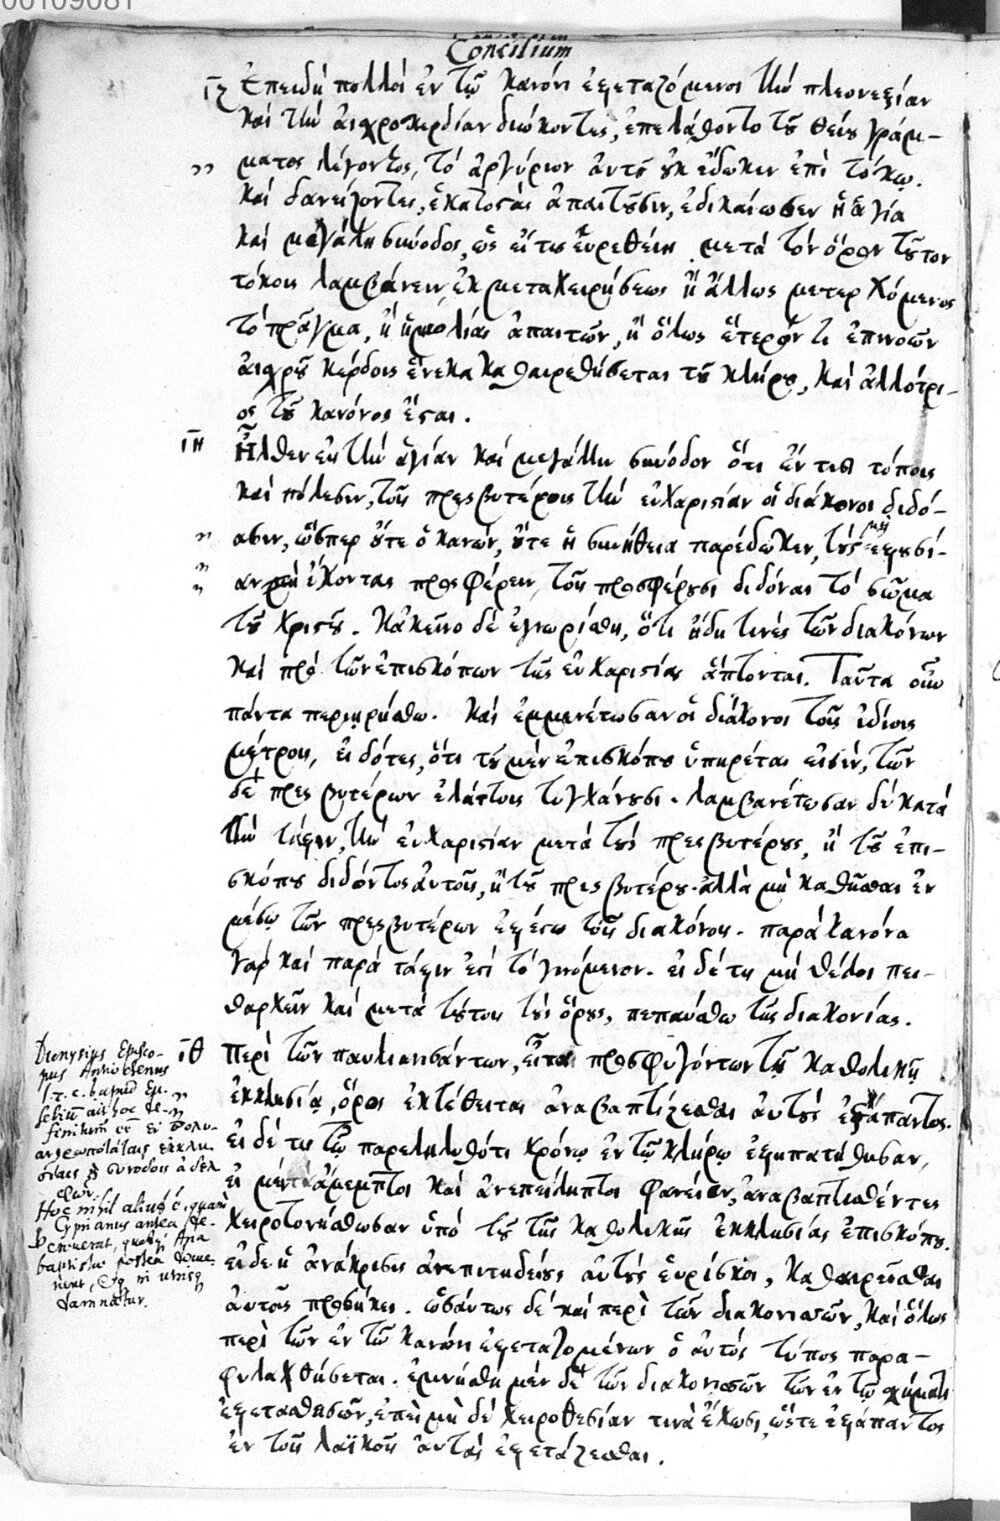 00109081
Concilium
ιζ Ἐπειδὴ πολλοὶ ἐν τῷ κανόνι ἐξεταζόμενοι τὴν πλεονεξίαν
καὶ τὴν αἰσχροκερδίαν διώκοντες, ἐπελάθοντο τοῦ θείου γράμ-
ματος λέγοντος, τὸ ἀργύριον αὐτοῦ οὐκ ἔδωκεν ἐπὶ τόκῳ.
καὶ δανείζοντες, ἑκατοστὰς ἀπαιτοῦσιν, ἐδικαίωσεν ἡ ἁγία
καὶ μεγάλη σύνοδος, ὡς εἴ τις εὑρεθείη μετὰ τὸν ὅρον τοῦτον
τόκους λαμβάνειν ἐκ μεταχειρήσεως ἢ ἄλλως μετερχόμενος
τὸ πρᾶγμα, ἢ ἡμιολίας ἀπαιτῶν, ἢ ὅλως ἕτερόν τι ἐπινοῶν
αἰσχροῦ κέρδους ἕνεκα καθαιρεθήσεται τοῦ κλήρου, καὶ ἀλλότρι-
ος τοῦ κανόνος ἔσται.
ιη Ἦλθεν εἰς τὴν ἁγίαν καὶ μεγάλην σύνοδον ὅτι ἔν τισι τόποις
καὶ πόλεσιν, τοῖς πρεσβυτέροις τὴν εὐχαριστίαν οἱ διάκονοι διδό-
ασιν, ὥσπερ οὔτε ὁ κανών, οὔτε ἡ συνήθεια παρέδωκεν, τοὺς μὴ ἐξουσί-
αν μὴ ἔχοντας προσφέρειν, τοῖς προσφέρουσι διδόναι τὸ σῶμα
τοῦ Χριστοῦ. Κἀκεῖνο δὲ ἐγνωρίσθη, ὅτι ἤδη τινὲς τῶν διακόνων
καὶ πρὸ τῶν ἐπισκόπων τῆς εὐχαριστίας ἅπτονται. Ταῦτα οὖν
πάντα περιῃρήσθω. καὶ ἐμμενέτωσαν οἱ διάκονοι τοῖς ἰδίοις
μέτροις, εἰδότες, ὅτι τοῦ μὲν ἐπισκόπου ὑπηρέται εἰσὶν, τῶν
δὲ πρεσβυτέρων ἐλάττους τυγχάνουσι. λαμβανέτωσαν δὲ κατὰ
τὴν τάξιν, τὴν εὐχαριστίαν μετὰ τοὺς πρεσβυτέρους, ἢ τοῦ ἐπι-
σκόπου διδόντος αὐτοῖς, ἢ τοῦ πρεσβυτέρου. ἀλλὰ μὴ καθῆσθαι ἐν
μέσῳ τῶν πρεσβυτέρων ἐξέστω τοῖς διακόνοις. παρὰ κανόνα
γὰρ καὶ παρὰ τάξιν ἐστὶ τὸ γινόμενον. εἰ δέ τις μὴ θέλοι πει-
θαρχεῖν καὶ μετὰ τούτους τοὺς ὅρους, πεπαύσθω τῆς διακονίας.
ιθ Περὶ τῶν παυλιανισάντων, εἶτα προσφυγόντων τῇ καθολικῇ
ἐκκλησίᾳ, ὅρος ἐκτέθειται ἀναβαπτίζεσθαι αὐτοὺς ἐξάπαντος.
εἰ δέ τις τῷ παρεληλυθότι χρόνῳ ἐν τῷ κλήρῳ ἐξηπατήθησαν,
εἰ μὲν ἄμεμπτοι καὶ ἀνεπίληπτοι φανεῖεν, ἀναβαπτισθέντες
χειροτονήσθωσαν ὑπὸ τοῦ τῆς καθολικῆς ἐκκλησίας ἐπισκόπου.
εἰ δὲ ἡ ἀνάκρισις ἀνεπιτηδείους αὐτοὺς εὑρίσκοι, καθαιρεῖσθαι
αὐτοὺς προσήκει. ὡσαύτως δὲ καὶ περὶ τῶν διακονισσῶν, καὶ ὅλως
περὶ τῶν ἐν τῷ κανόνι ἐξεταζομένων ὁ αὐτὸς τύπος παρα-
φυλαχθήσεται. ἐμνήσθημεν δὲ τῶν διακονισσῶν τῶν ἐν τῷ σχήματι
ἐξετασθεισῶν, ἐπεὶ μὴ δὲ χειροθεσίαν τινὰ ἔχωσι, ὥστε ἐξάπαντος
ἐν τοῖς λαϊκοῖς αὐτὰς ἐξετάζεσθαι.
Dionysius Episco-
pus
finitum
Hoc nihil aliud quam
Cyprianus antea de-
damnatur.